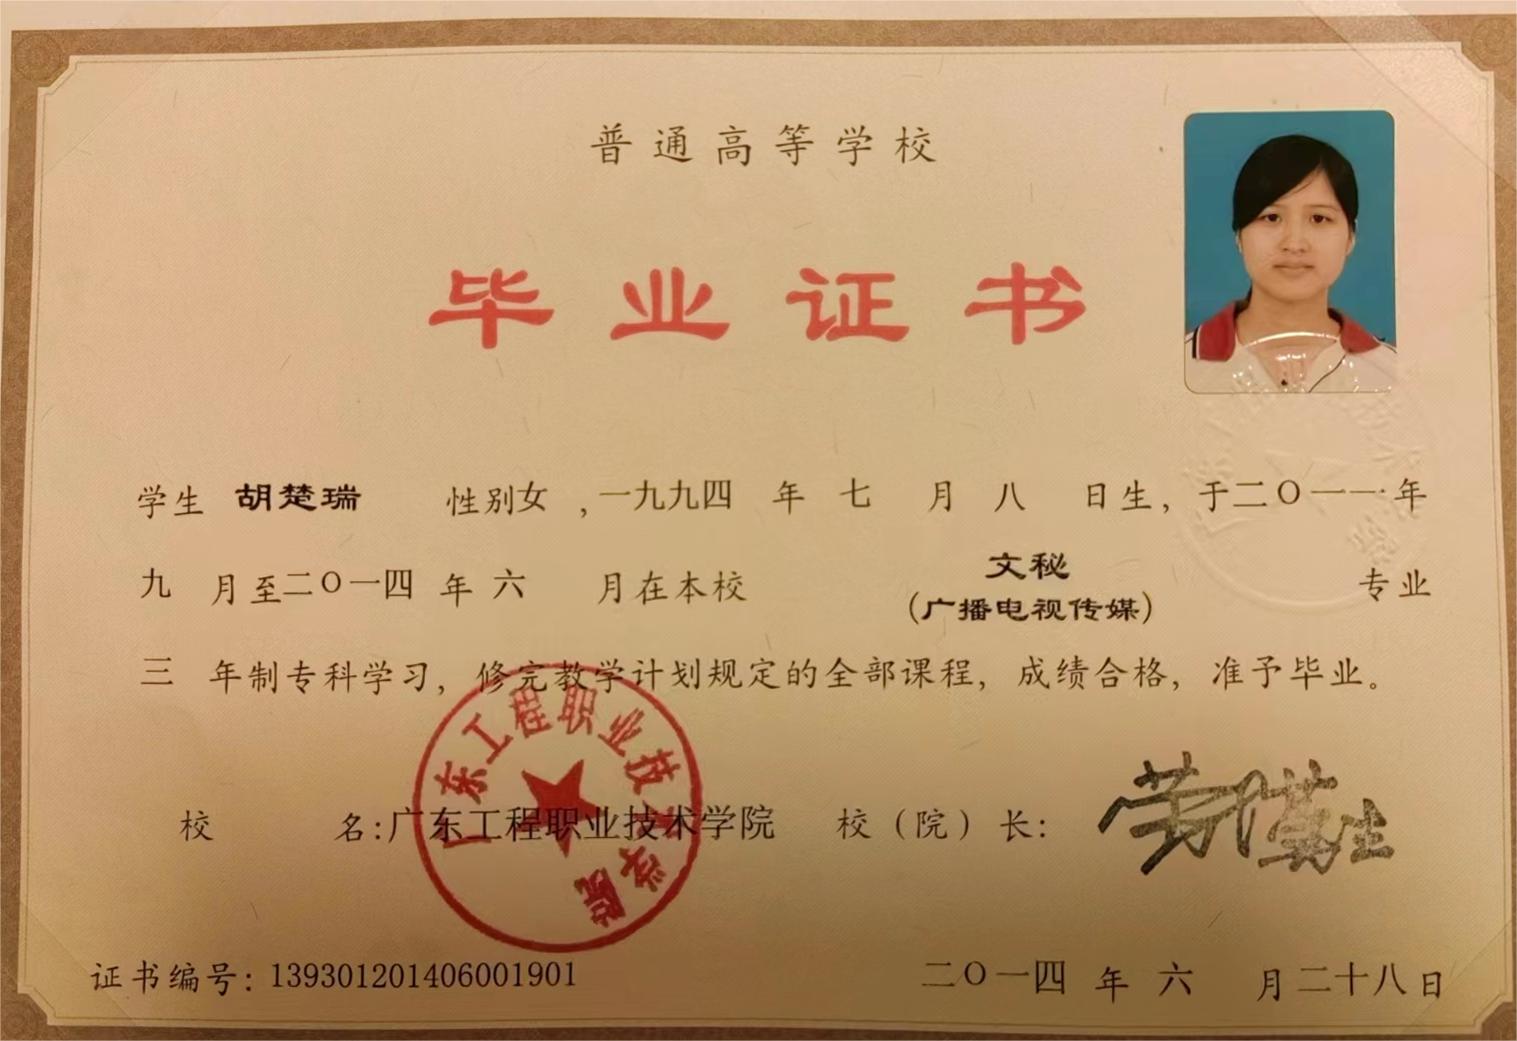 普通高等学校
毕业证书
学生 胡楚瑞 性别女，一九九四年七月八日生，于二〇一一年
九月至二〇一四年六月在本校 文秘 专业
(广播电视传媒)
三年制专科学习，修完教学计划规定的全部课程，成绩合格，准予毕业。
校 名:广东工程职业技术学院 校（院）长:
广东工程职业技术学院
证书编号: 139301201406001901 二〇一四年六月二十八日